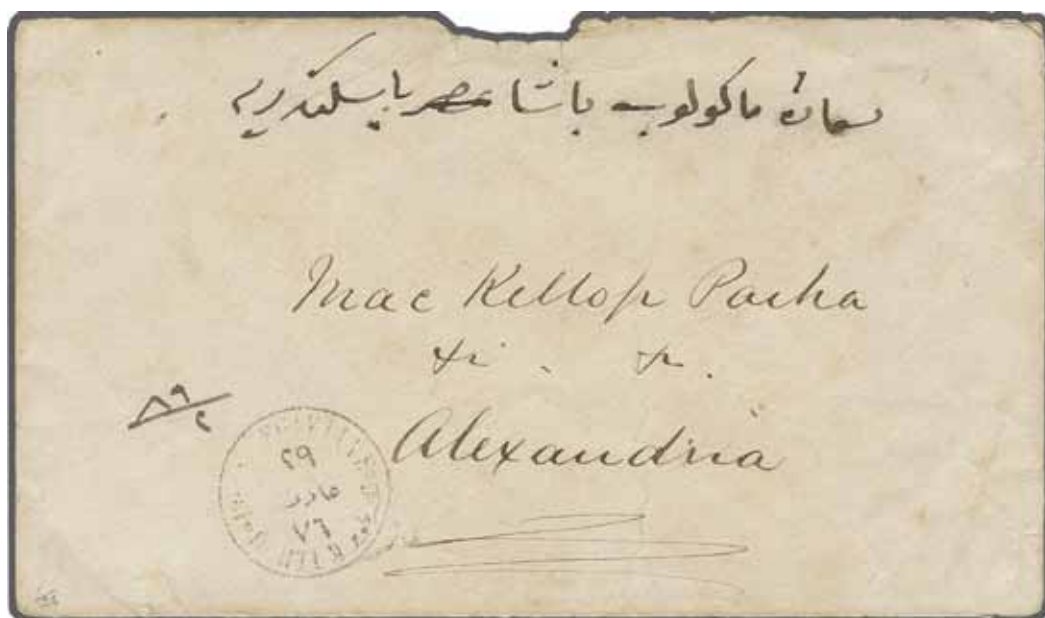 سعادة ماكولوب باشا مصر باسكندريه
Mac Killop Pasha
&c. &c.
Alexandria
٨٩
٢
٢٩
مارس
٧٦